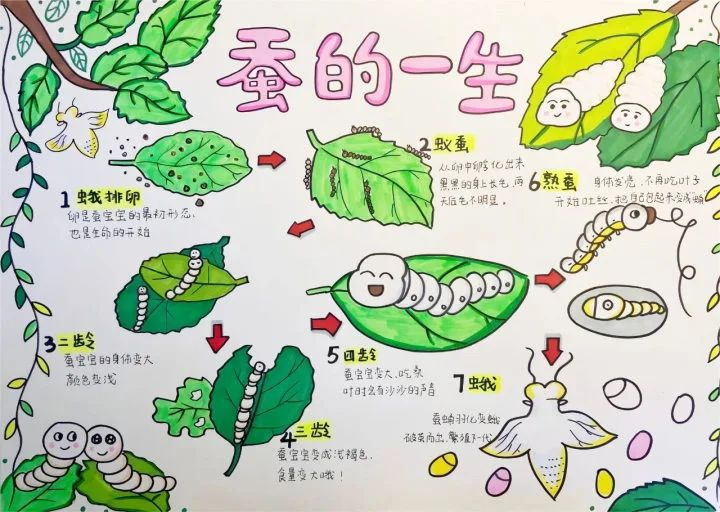 蚕的一生
1 蛾排卵
卵是蚕宝宝的最初形态,
也是生命的开始
2 蚁蚕
从卵中孵化出来
黑黑的身上长毛,两
天后毛不明显。
3 二龄
蚕宝宝的身体变大
颜色变浅
4 三龄
蚕宝宝变成浅褐色,
食量变大哦!
5 四龄
蚕宝宝变大、吃桑
叶时会有沙沙的声音
6 熟蚕
身体发亮,不再吃叶子
开始吐丝,把自己包起来变成蛹
7 蛾
蚕蛹羽化变蛾
破茧而出,繁殖下一代